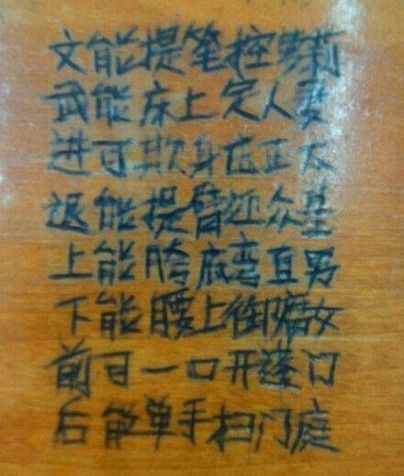 文能提笔控萝莉
武能床上定人妻
进可欺身压正太
退能提臂迎众基
上能胯底弯直男
下能腰上御腐女
前可一口开蓬门
后能单手扫门庭